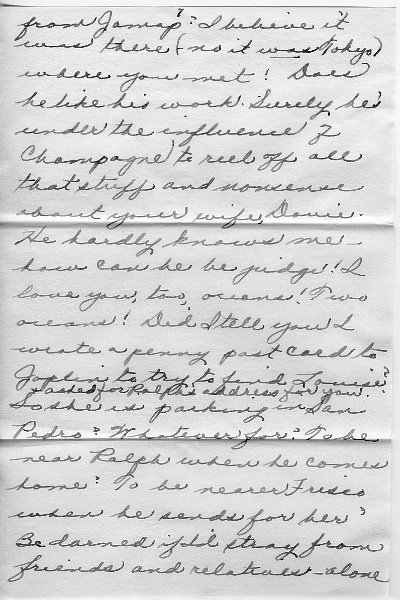 from Jamap? I believe it
was there (no it was Tokyo)
where you met! Does
he like his work. Surely he's
under the influence of
Champagne to reel off all
that stuff and nonsense
about your wife,
He hardly knows me -
how can he be judge! I
love you, too, oceans! Two
oceans! Did I tell you I
wrote a penny post card to
Joplin to try to find Louise?
I asked for Ralph's address for you.
So she is parking in San
Pedro? Whatever for? To be
near Ralph when he comes
home? To be nearer Frisco
when he sends for her?
Be darned if I'd stray from
friends and relatives - alone